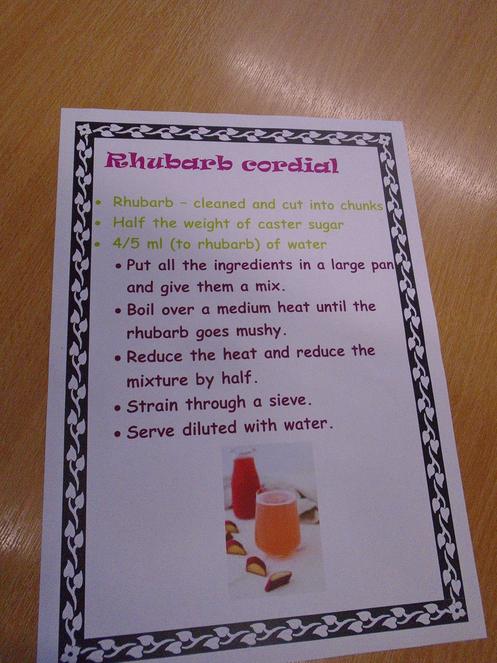 Rhubarb cordial
• Rhubarb – cleaned and cut into chunks
• Half the weight of caster sugar
• 4/5 ml (to rhubarb) of water
• Put all the ingredients in a large pan
and give them a mix.
• Boil over a medium heat until the
rhubarb goes mushy.
• Reduce the heat and reduce the
mixture by half.
• Strain through a sieve.
• Serve diluted with water.